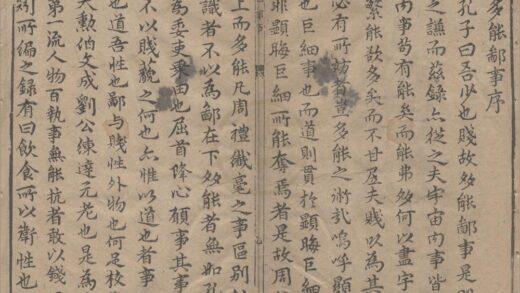 多能鄙事序
孔子曰吾少也賤故多能鄙事是
之謙而茲錄亦從之夫宇宙向事皆
向事苟有能矣而能弗多何以盡宇
繁能欲多矣而不甘及夫賤以為其
必有所妨者豈多能之淋式嗚呼顯
也巨細事也而道則貫於顯晦巨細
非顯晦巨細所能奪焉者是故周
上而多能凡周禮纖毫之事區別
識者不以為鄙在下多能者無如孔
為委吏乘田也屈首降心碩事其事
不以賤藐之何也亦惟以道也者事
也道吾性也鄙与賤性外物也何足校
大勲伯文成劉公練達元老也是為
第一流人物百執事無能抗者敢以錢
則所編之錄有曰飲食所以衛性也